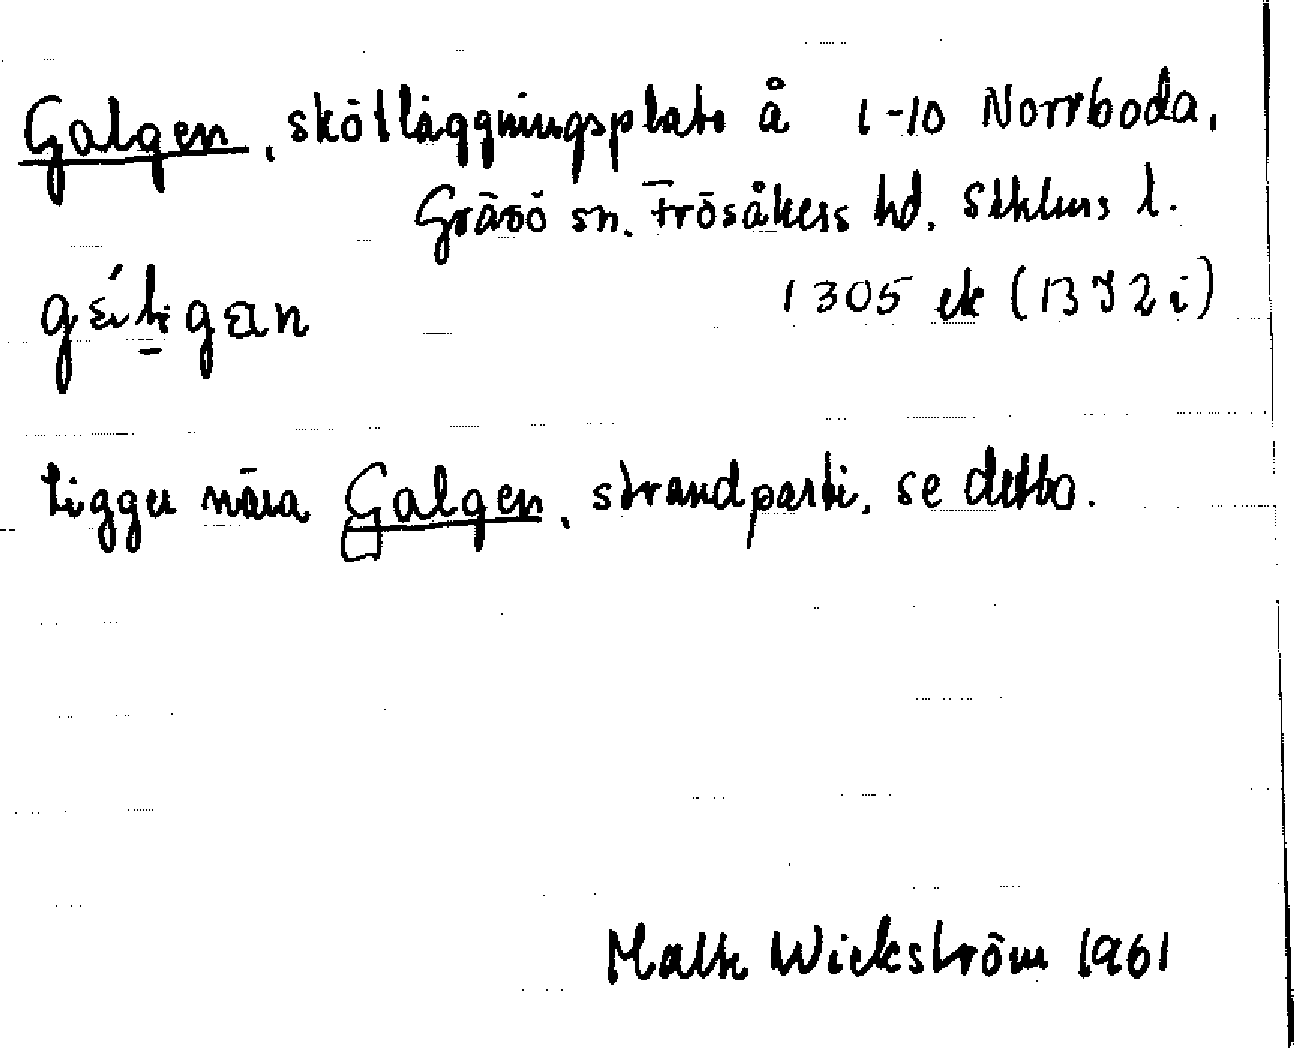 Galgen, skötläggningsplats å 1-10 Norrboda,
Gräsö sn. Frösåkers hd. Sthlms l.
1305 ek (13 I 2 i)
Ligger nära Galgen, strandparti, se detta.
Malte Wickström 1961